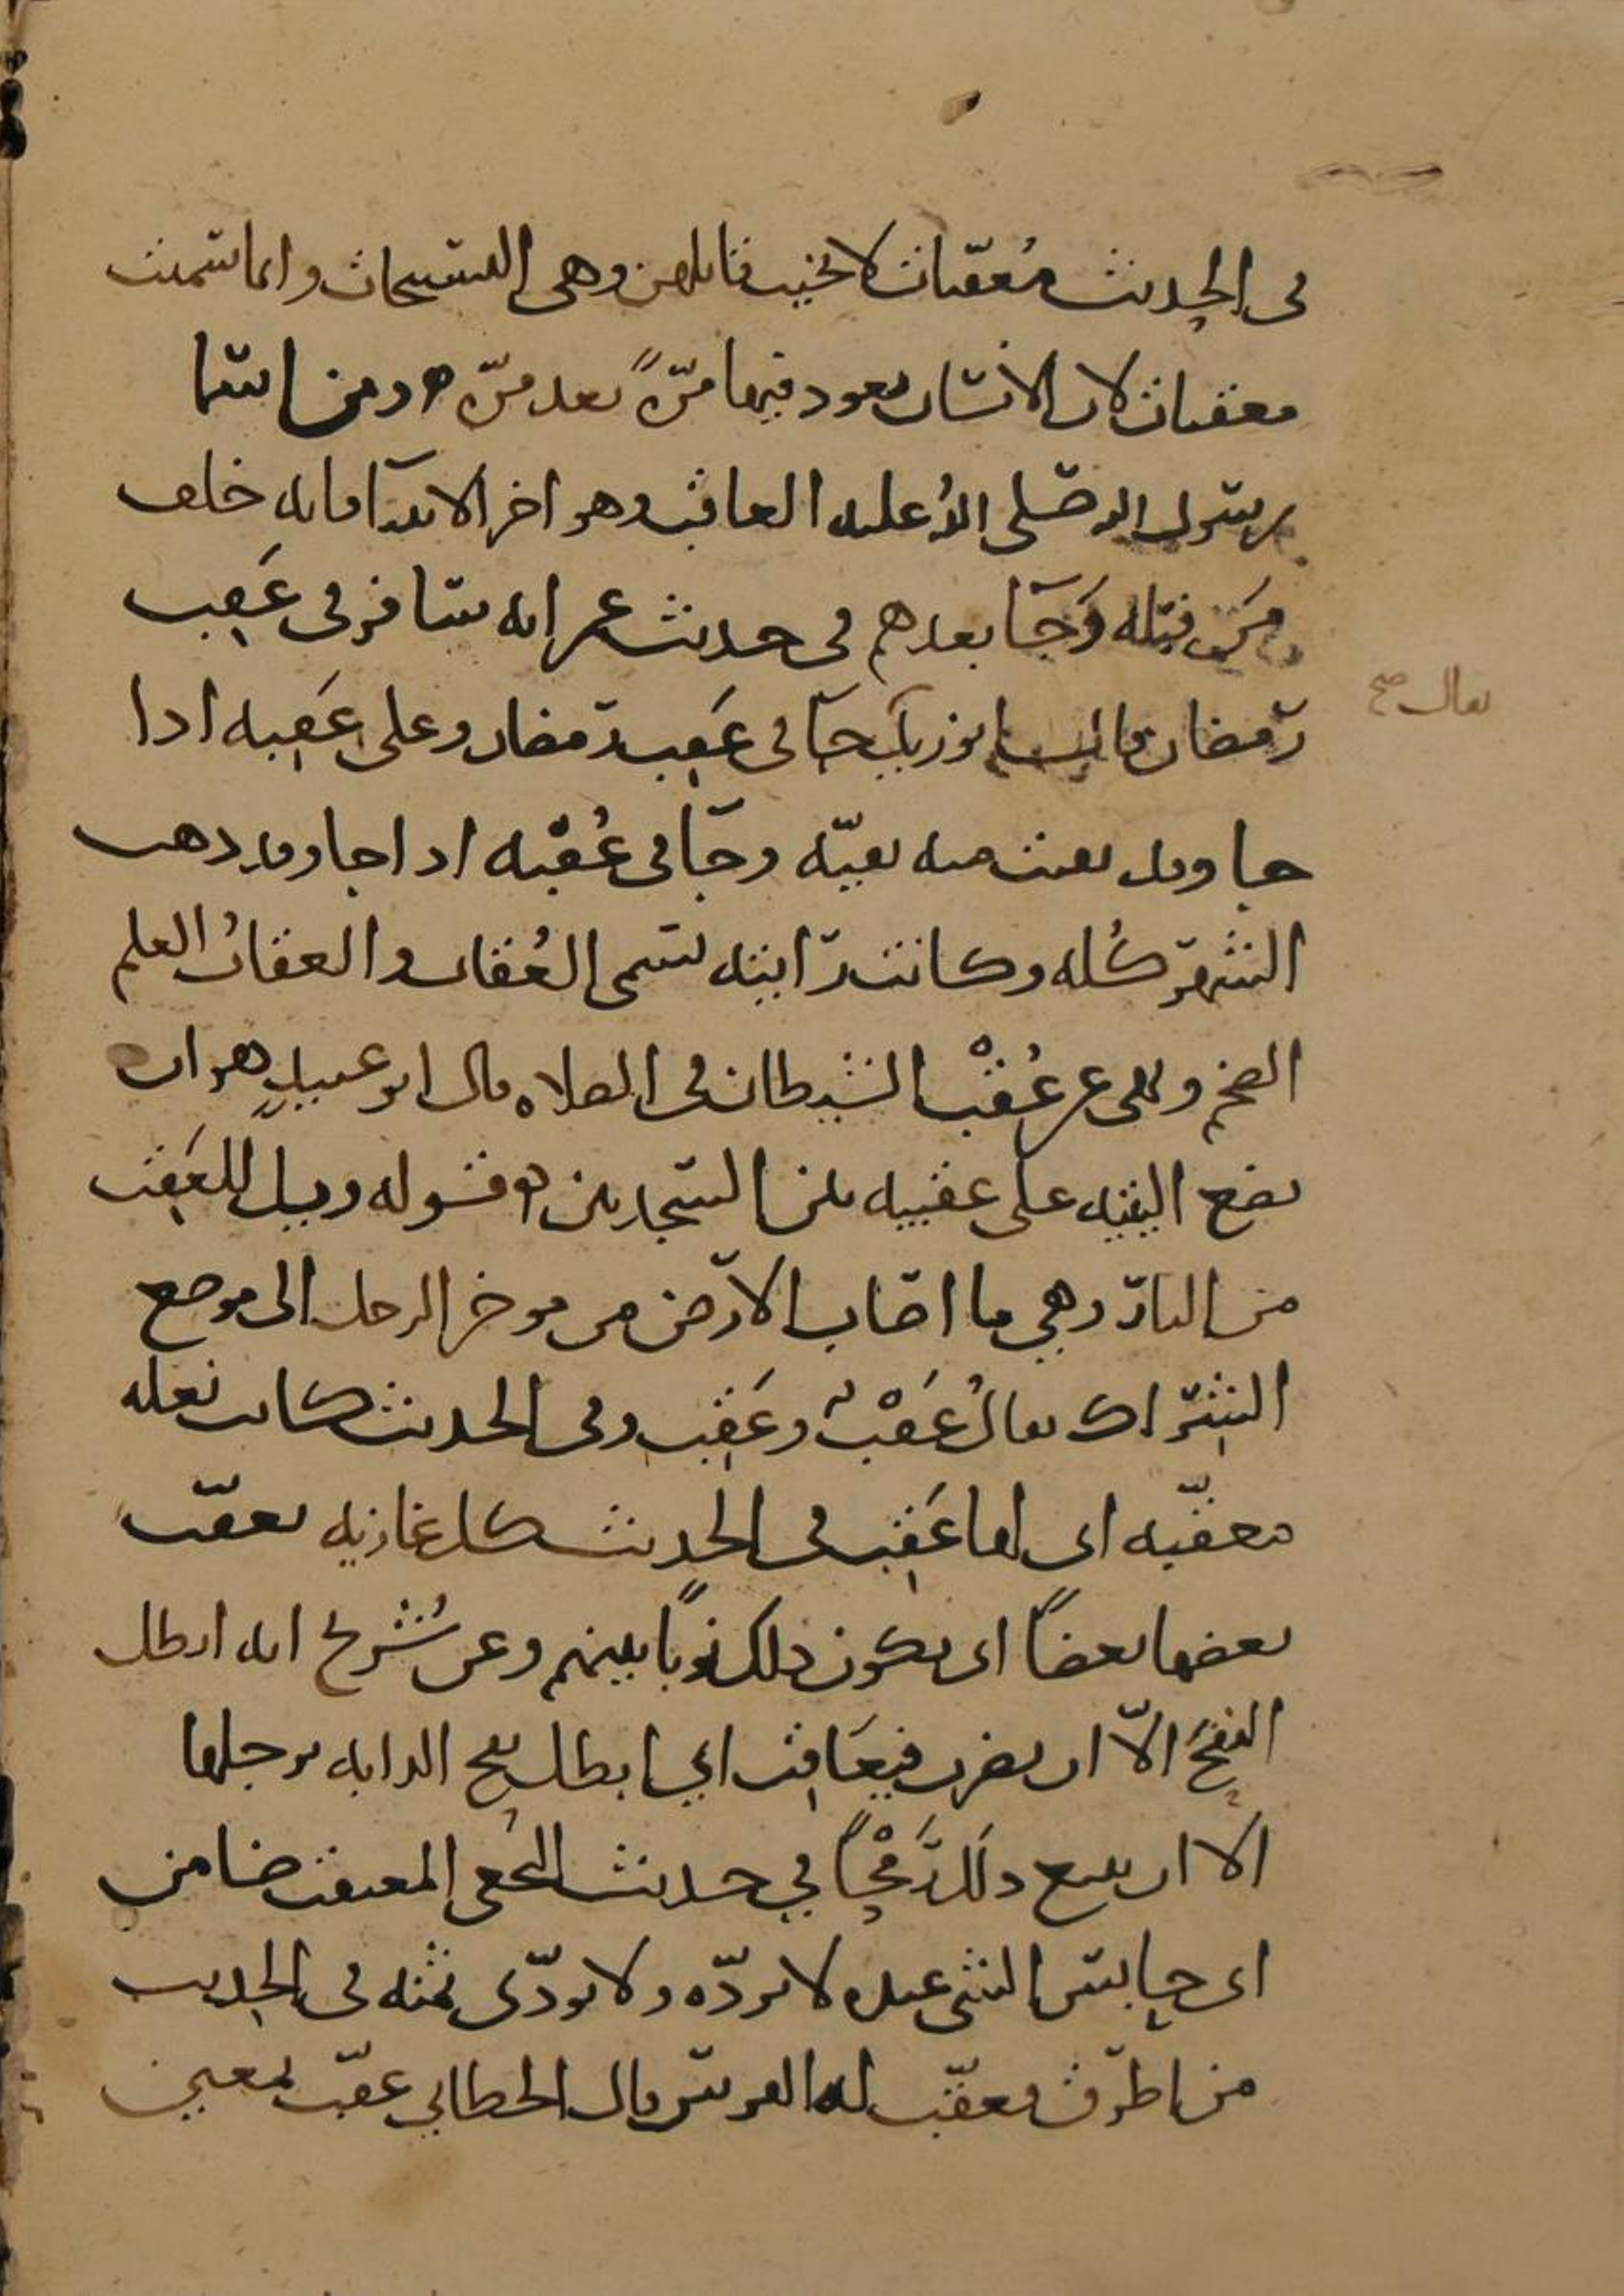 في الحديث مُعقّبات لا يخيب قائلهن وهي التسبيحات وانما سميت
معقبات لان الانسان يعود فيها مرّةً بعد مرّة ومن اسما
رسول الله صلى الله عليه العاقب وهو اخر الانبيآ فانه خلف
من قبله وَجَآ بعدهم في حديث عمر انه سافر في عَقِب
رمضان قال ابو زيد جآ في عَقِب رمضان وعلى عَقِبه اذا
يقال صح
جا وقد بقيت منه بقيّه وجآ في عُقْبه اذا جا وقد ذهب
الشهر كُله وكانت رايته تسمى العُقاب والعقابُ العلم
الضخم ونهى عن عُقْب الشيطان في الصلاه قال ابو عبيدٍ هو ان
يضع اليتيه على عقبيه بين السجدتين قوله ويل للعَقِب
من النار وهي ما اصاب الارض من موخر الرجل الى موضع
الشِراك يقالُ عَقْبٌ وعَقِب وفي الحديث كانت نعله
معقّبه اي لها عَقِب في الحديث كل غازيه يعقّب
بعضها بعضًا اي يكون ذلك نوبًا بينهم وعن شُريح انه ابطل
النفحَ الاّ ان يضرب فيعَاقِب اي ابطل نفح الدابه برجلها
الا ان يتبع ذلك رَمْحًا في حديث النخعي المعتقب ضامن
اي حابس الشي عنده لا يردّه ولا يودّى ثمنه في الحديث
من اطرق فعقّب له الفرس قال الخطابي عقّب بمعنى